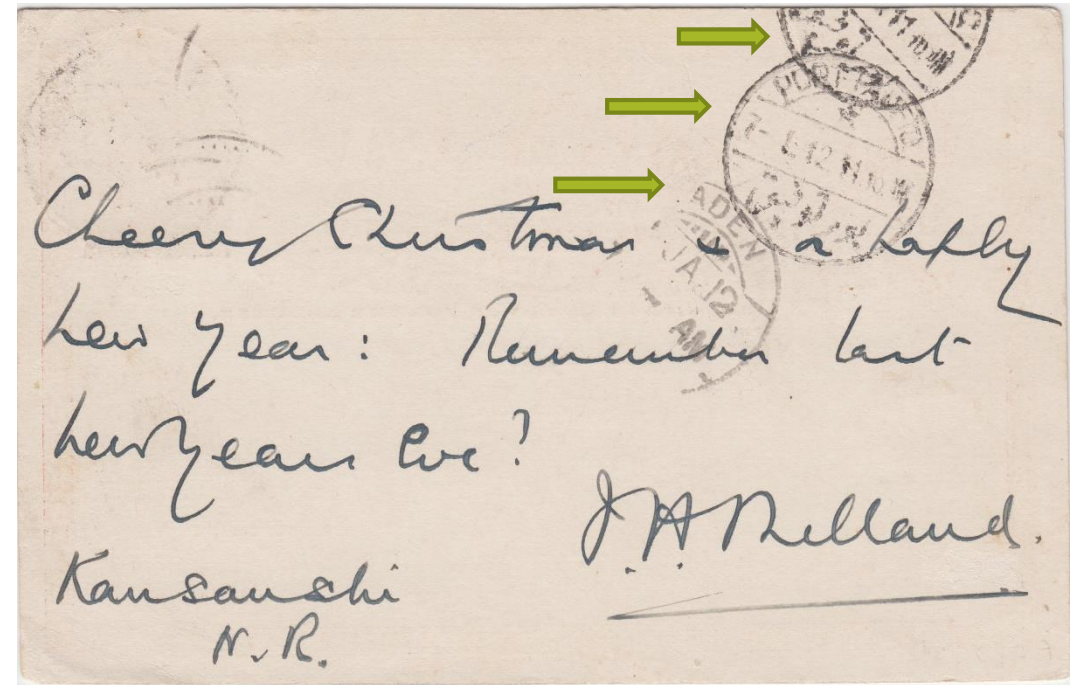 PORT TAUFIQ
ADEN
JA.12
AM
Cheery Christmas & a happy
new year: Remember last
new years Eve?
F H Melland.
Kansanshi
N.R.